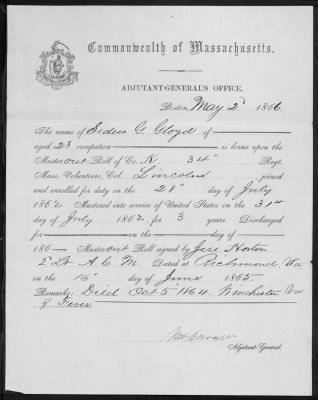 Commonwealth of Massachusetts.
ADJUTANT-GENERAL'S OFFICE.
Boston, May 2d 1866
The name of Sedus G. Gloyd of
aged 23 occupation is borne upon the
Muster out Roll of Co. K. 34th Regt.
Mass. Volunteers, Col. Lincoln joined
and enrolled for duty on the 28th day of July
1862 Mustered into service of United States on the 31st
day of July 1862 for 3 years. Discharged
for on the day of
186 Muster out Roll signed by Jere Horton
2d Lt A. C. M. Dated at Richmond Va
on the 16 day of June 1865
Remarks: Died Oct 5th 1864. Winchester Va
of Fever
Adjutant-General.